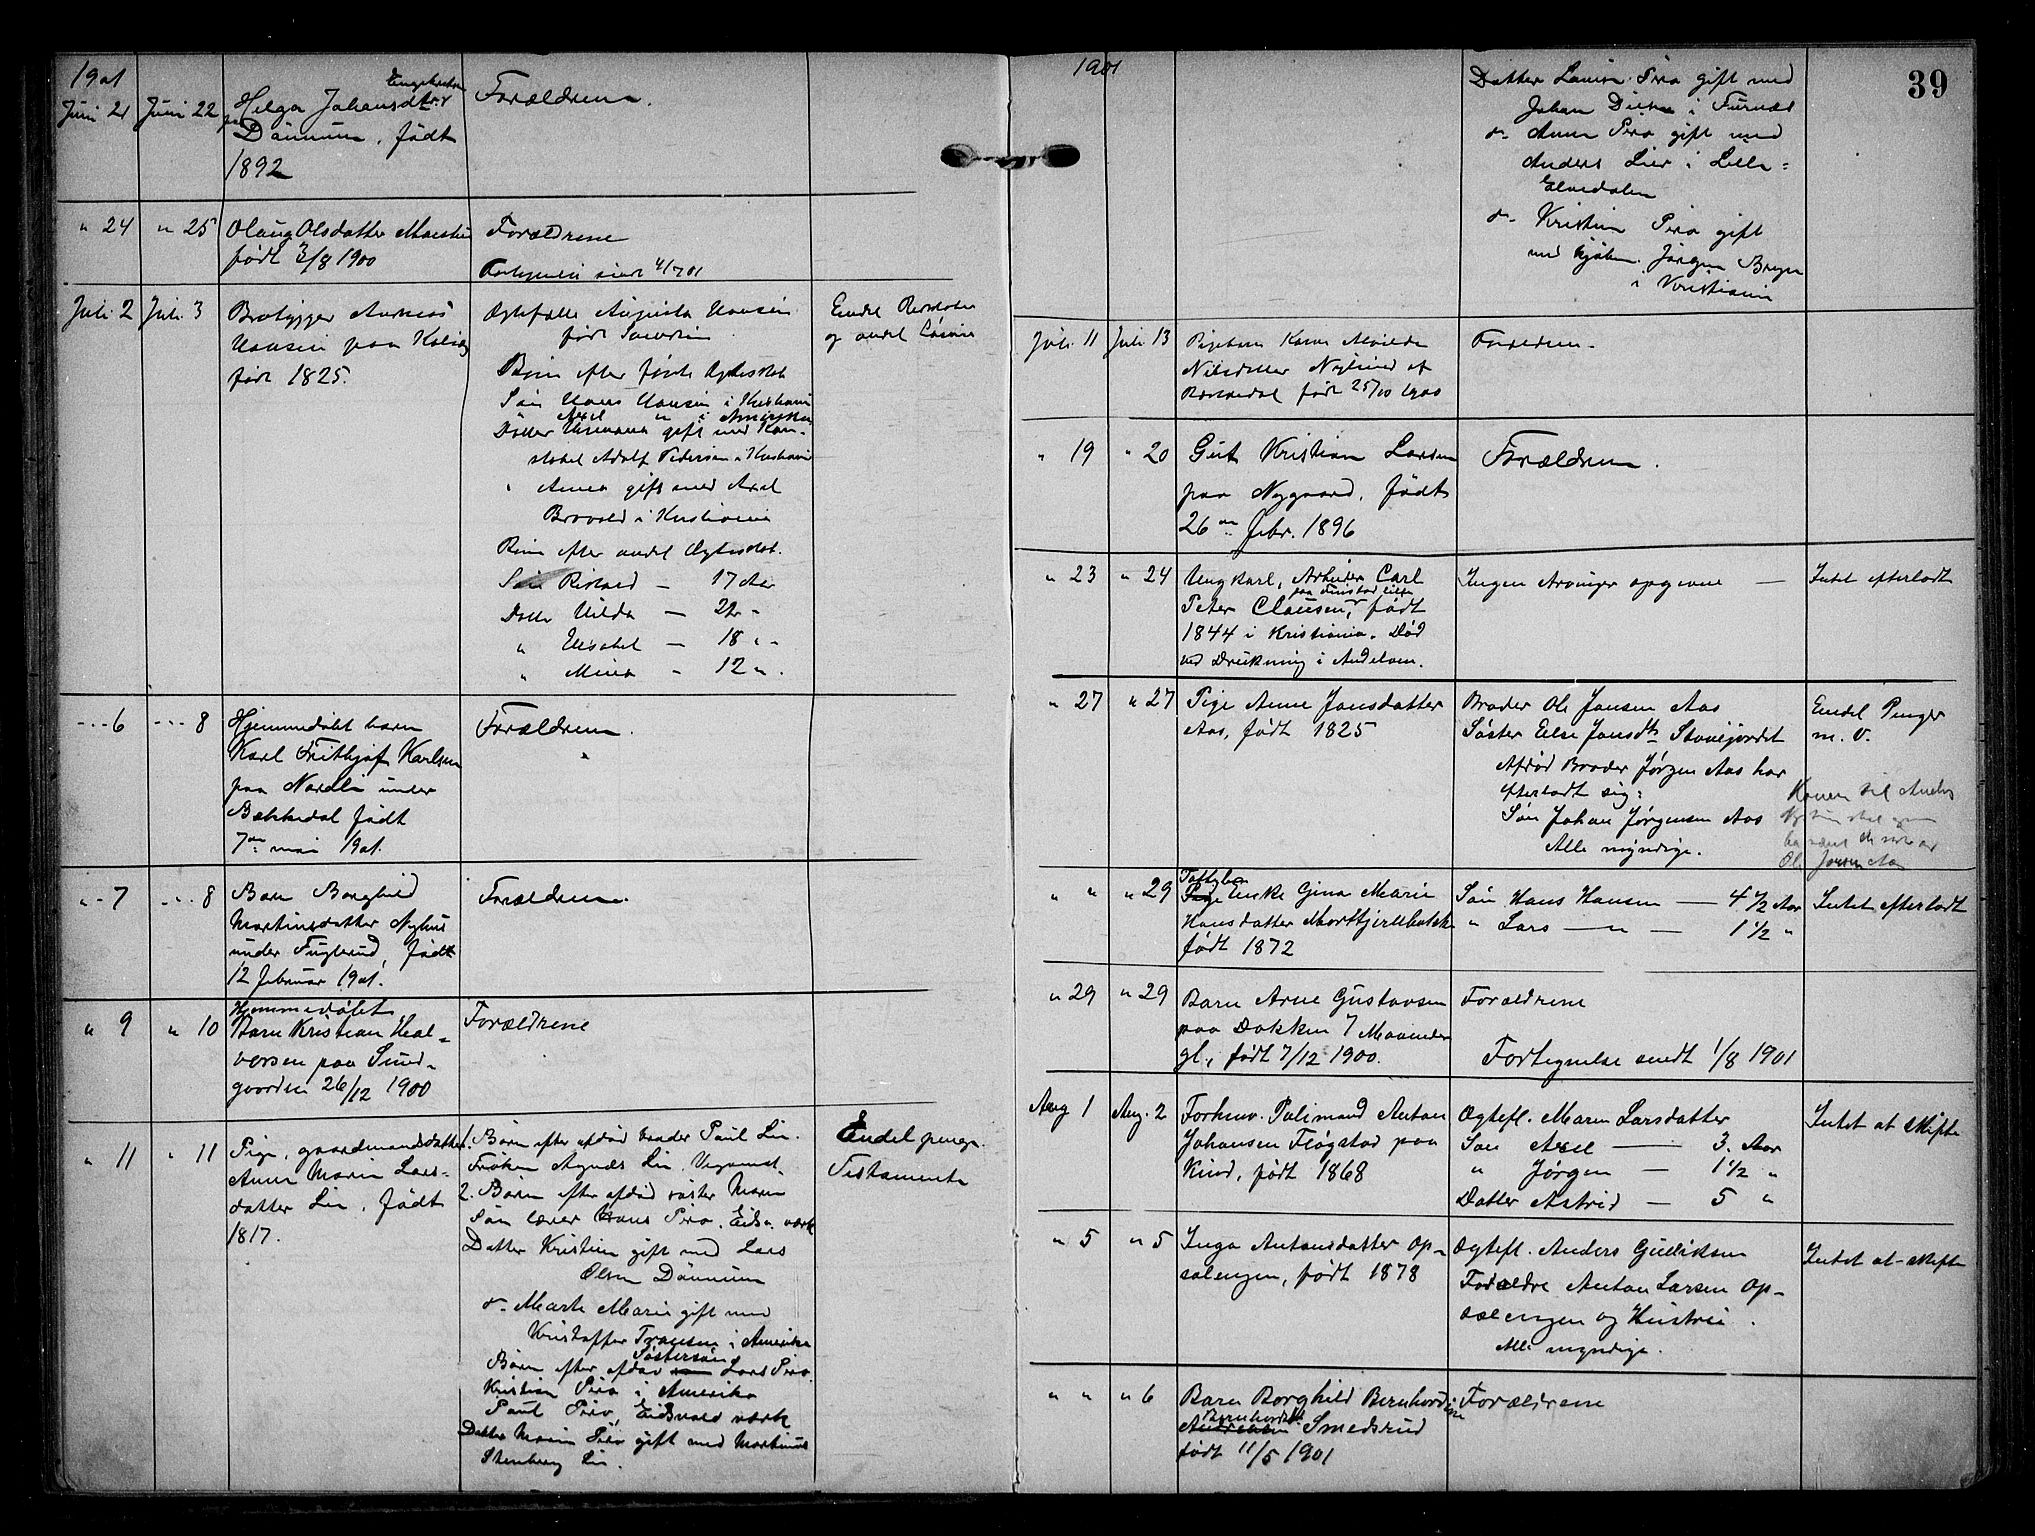 1901
Juni 21 Juni 22 Helga Johansdtr
Dønnum, født
1892
Forældrene.
" 24 " 25 Olaug Olsdatter
født 3/8 1900
Forældrene
Fortegnelse sendt 4/7 01
Juli 2 Juli 3 Brobygger Andreas
Hansen paa
født 1825.
Ægtefælle Augusta Hansen
født
Børn efter første Ægteskab
Søn Hans Hansen i Kristiania
Axel " i Amerika
Datter gift med Kon-
stabel Adolf Pedersen i Kristiania
" Anna gift med Axel
Brovold i Kristiania
Børn efter andet Ægteskab.
Søn Rikard — 17 Aar
Datter Hilda — 21 "
" Elisabet — 18 " "
" Mina " 12 ".
Endel
og andet Løsøre
" 6 " 8 Hjemmedøbt barn
Karl Frithjof Karlsen
paa Nordli under
Bekkedal født
7de mai 1901.
Forældrene.
" 7 " 8 Barn Borghild
Martinsdatter Nyhus
under Fuglerud, født
12 Februar 1901.
Forældrene.
" 9 " 10 Hjemmedøbt
Barn Kristian Hal-
vorsen paa Smed-
gaarden 26/12 1900
Forældrene
" 11 " 11 Pige, gaardmandsdatter
Anne Marie Lars-
datter Lie, født
1817.
1. Børn efter afdød broder Paul Lie.
Frøken Agnes Lie,
2. Børn efter afdød søster Maren
Søn lærer Hans Piro, Eidsv. værk
Datter Kristine gift med Lars
Olsen Dønnum
do- Marte Marie gift med
Kristoffer Fransen i Amerika
Børn efter afdød Søstersøn Lars Piro
Kristian Piro i Amerika
Paul Piro, Eidsvold værk
Datter Maren Piro gift med Martinus
Stenberg Lie.
Endel penge.
Testamente
1901
39
Datter Lovise Piro gift med
Johan i Furnæs
do- Anne Piro gift med
Anders Lier i Lille-
Elvedalen
do- Kristine Piro gift
med kjøbm. Jørgen
i Kristiania
Juli 11 Juli 13 Pigebarn Karen Alvilde
Nilsdatter af
født 25/10 1900
Forældrene.
" 19 " 20 Gut Kristian Larsen
paa Nygaard, født
26de Febr. 1896
Forældrene.
" 23 " 24 Ungkarl, Arbeider Carl
paa Finstad eie
Peter Clausen, født
1844 i Kristiania. Død
ved Drukning i Andelven.
Ingen Arvinger opgivne — Intet efterladt
" 27 " 27 Pige Anne Jonsdatter
Aas, født 1825
Broder Ole Jonsen Aas
Søster Else Jonsdtr
Afdød Broder Jørgen Aas har
efterladt sig:
Søn Johan Jørgensen Aas
Alle myndige.
Endel Penger
m. v.
Konen til Anders
" " " 29 Enke Gina Marie
Hansdatter
født 1872
Søn Hans Hansen — 4 1/2 Aar
" Lars — " — 1 1/2 "
Intet efterladt
" 29 " 29 Barn Arne Gustavsen
paa Dokken 7 Maaneder
gl., født 7/12 1900.
Forældrene
Fortegnelse sendt 1/8 1901
Aug 1 Aug. 2 Forhenv. Politimand Anton
Johansen Fløgstad paa
født 1868
Ægtefl. Maren Larsdatter
Søn Axel — 3. Aar
" Jørgen — 1 1/2 "
Datter Astrid — 5 "
Intet at skifte
" 5 " 5 Inga Antonsdatter Op-
salengen, født 1878
Ægtefl. Anders Gulliksen
Forældre Anton Larsen Op-
salengen og Hustru.
Alle myndige.
Intet at skifte
" " " 6 Barn Borghild Bernhardine
Bernhardsdtr
Smedsrud
født 11/5 1901
Forældrene